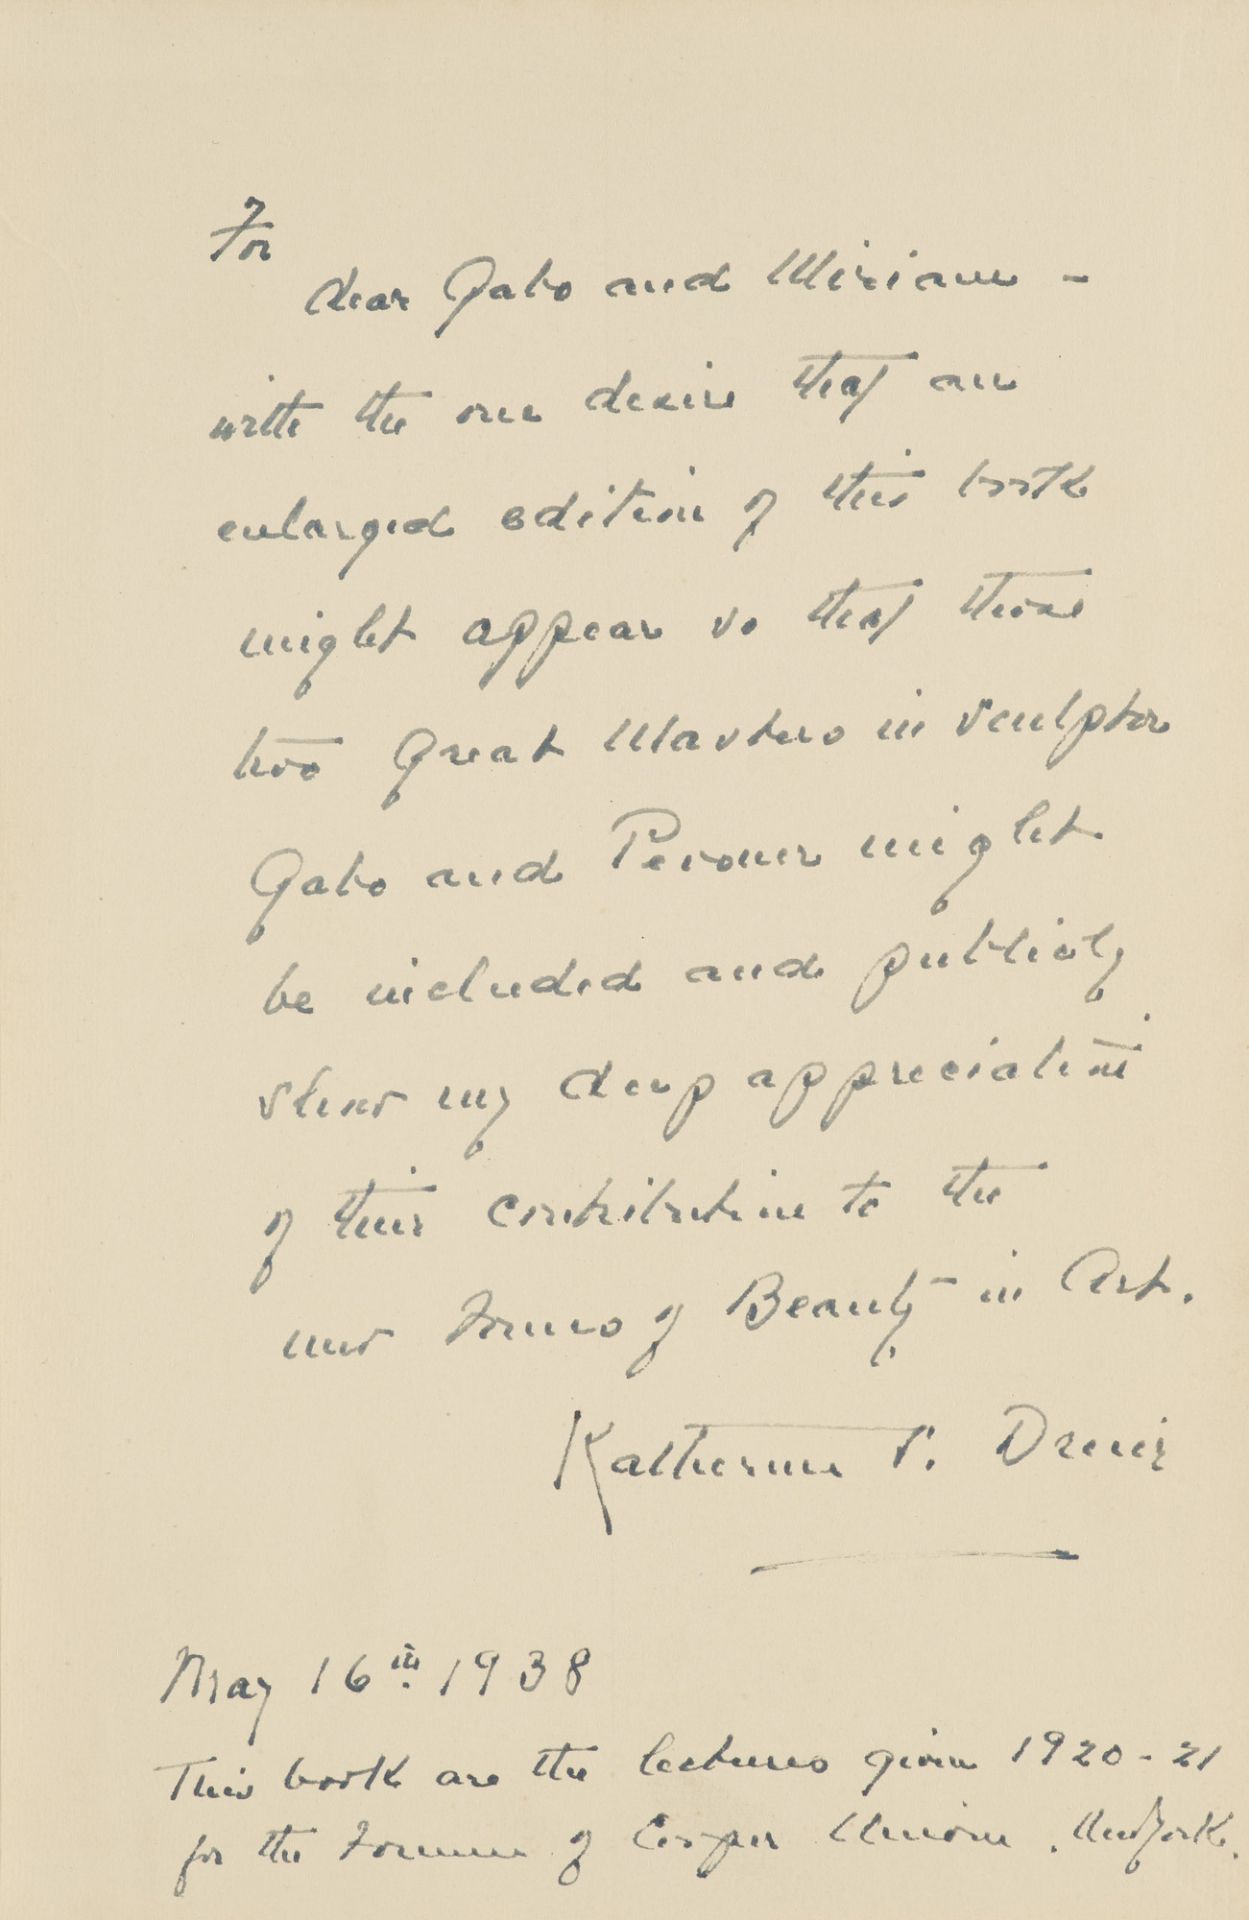 For
dear Gabo and Miriam -
with the one desire that an
enlarged edition of this book
might appear so that these
two Great Masters in sculptor
Gabo and Pevsner might
be included and publicly
show my deep appreciation
of their contribution to the
new Forms of Beauty - in Art.
Katherine S. Dreier
May 16th. 1938
This book are the lectures given 1920-21
for the Forum of Cooper Union. New York.